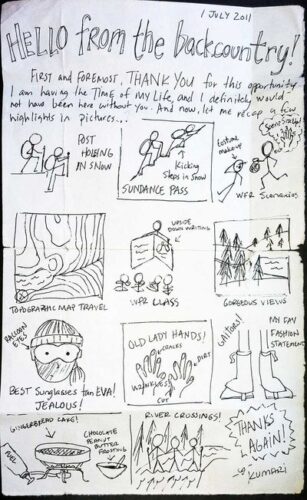 1 JULY 2011
HELLO from the backcountry!
FIRST and FOREMOST, THANK YOU for this opportunity
I am having the TIME OF MY LIFE, and I definitely would
not have been here without you. And now, let me recap a few
highlights in pictures...
POST
HOLING
IN SNOW
Kicking
Steps in Snow
SUNDANCE PASS
WFR Scenarios
TOPOGRAPHIC MAP TRAVEL
UPSIDE
DOWN WRITING
WFR CLASS
GORGEOUS VIEWS
RACCOON
EYES
BEST Sunglasses tan EVA!
JEALOUS!
OLD LADY HANDS!
CRACKS
DIRT
WRINKLES
CUT
GAITORS!
MY FAV
FASHION
STATEMENT
GINGERBREAD CAKE!
FUEL
CHOCOLATE
PEANUT
BUTTER
FROSTING
RIVER CROSSINGS!
THANKS
AGAIN!
KUMARI